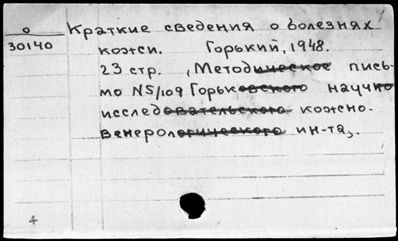 о
30140
Краткие сведения о болезнях
кожи. Горький, 1948.
23 стр. (Методическое пись-
мо N5/109 Горьковского научно
исследовательского кожно-
венерологического ин-та).
4